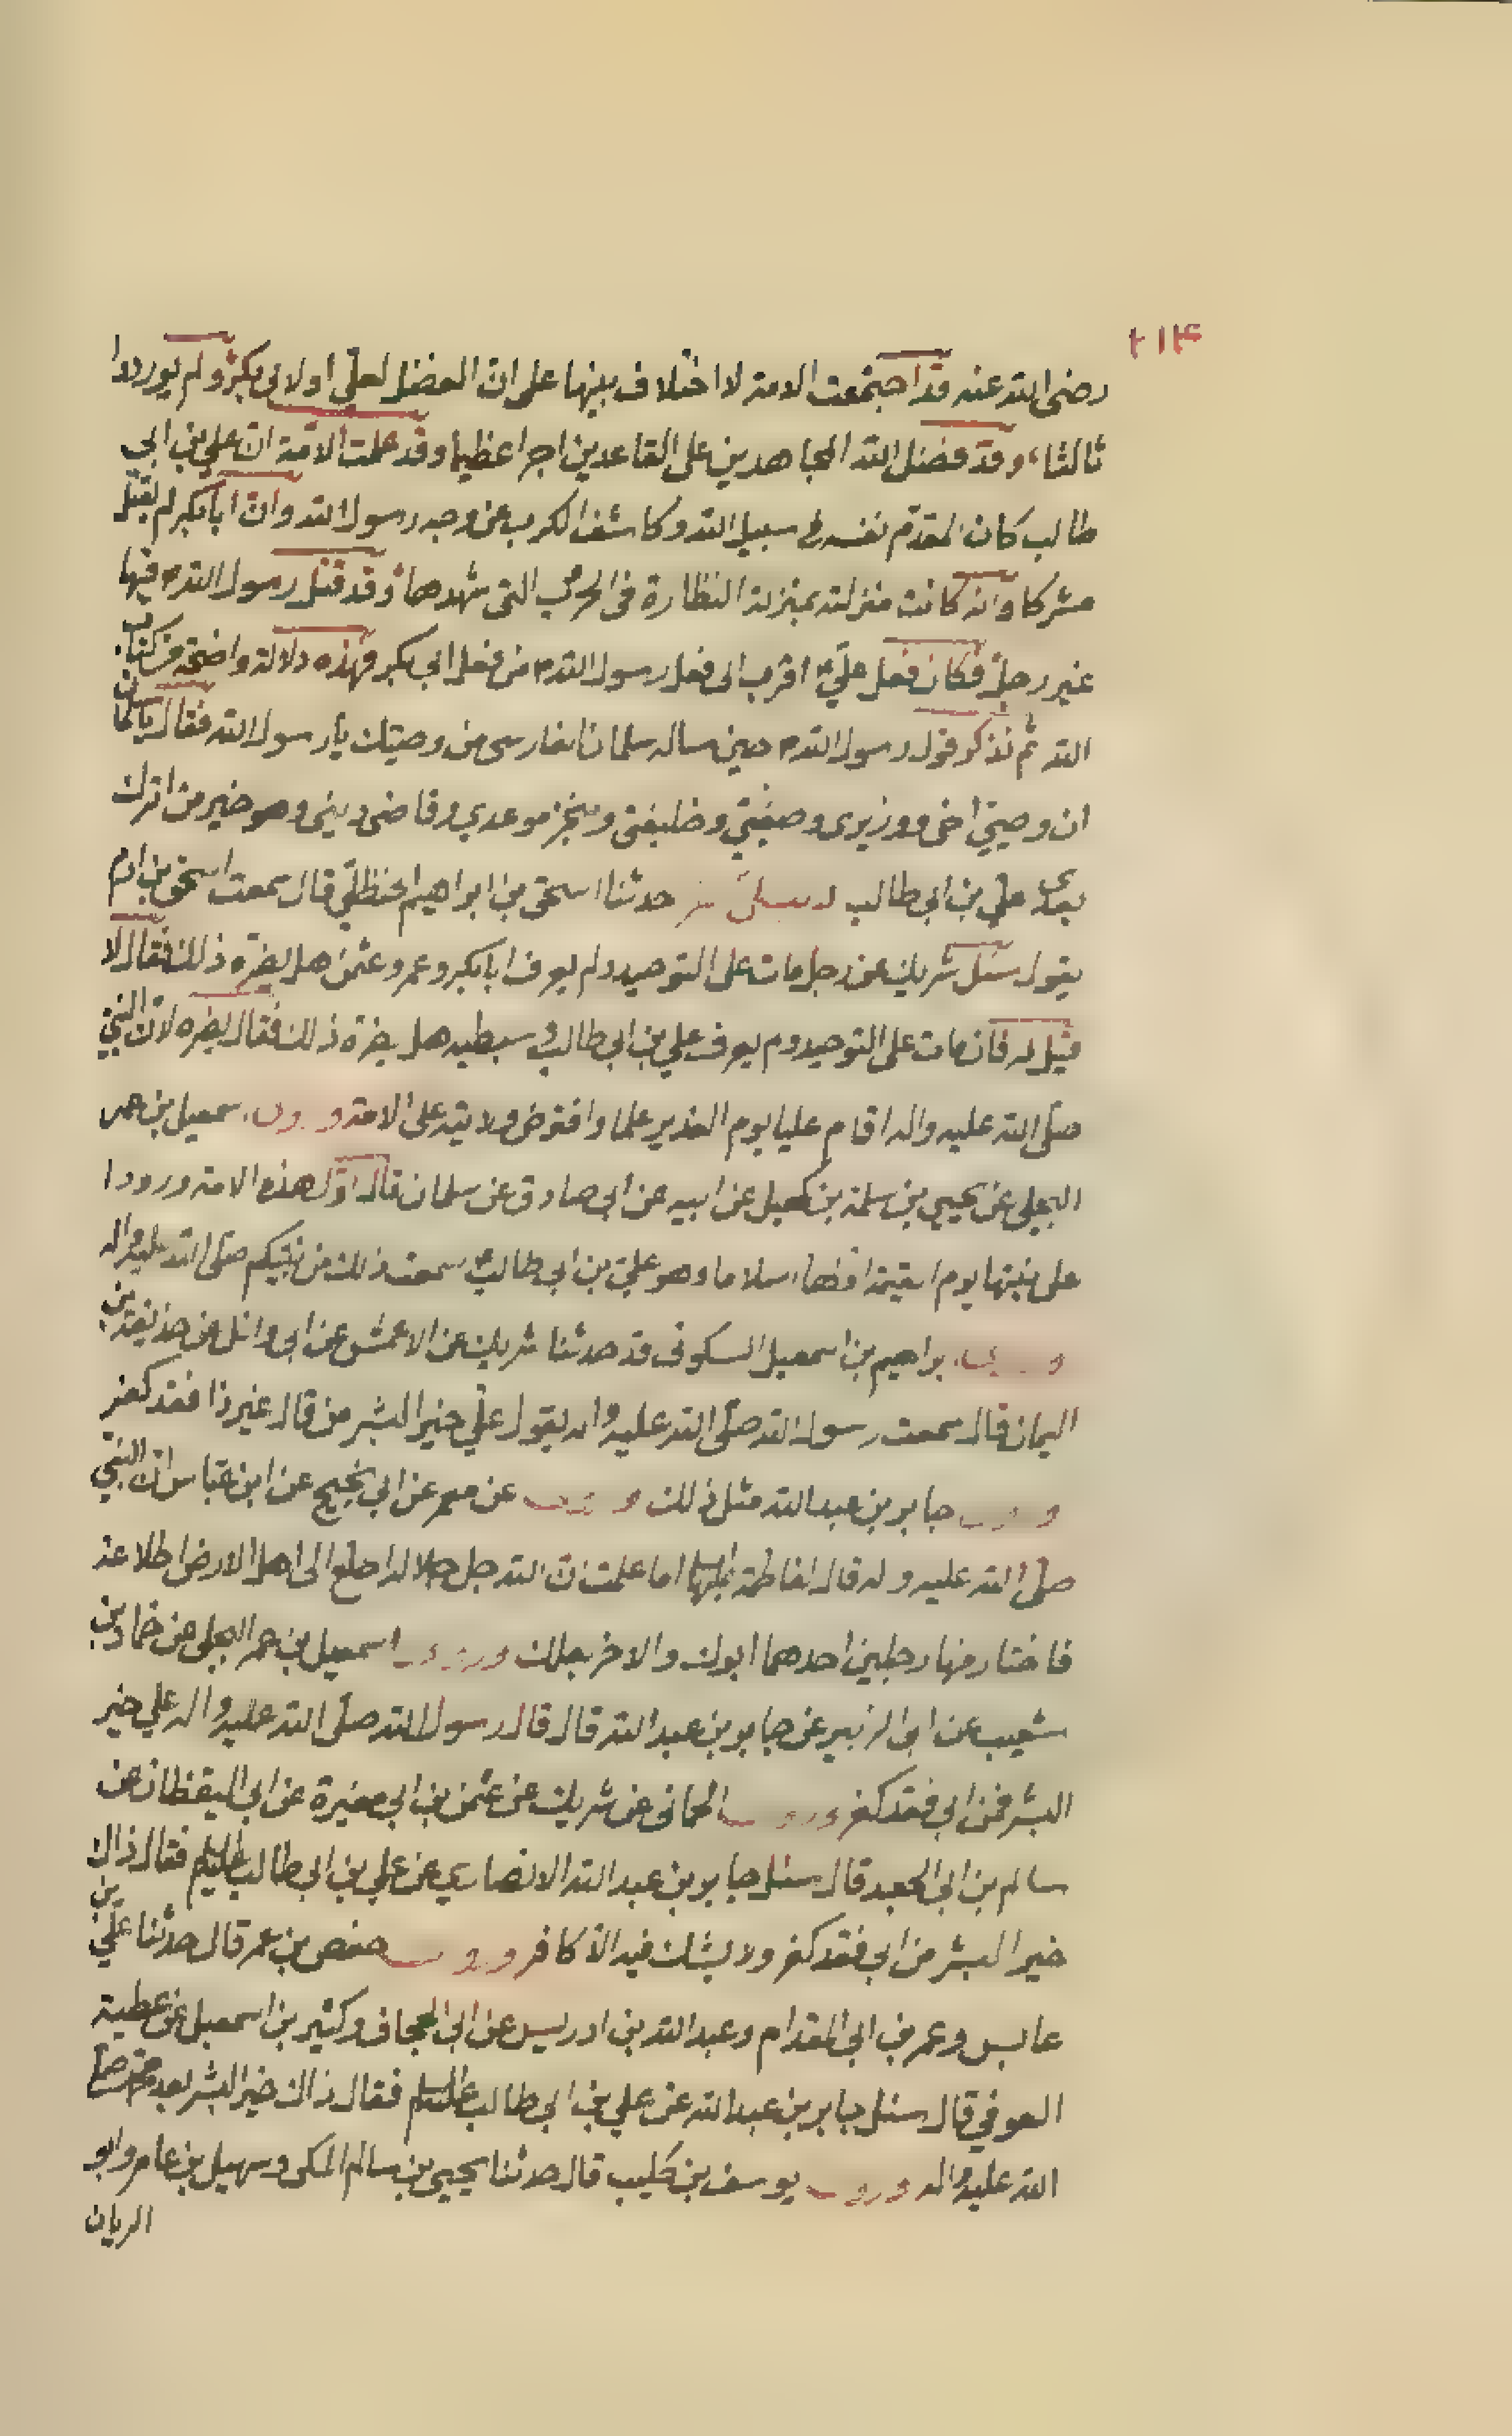 ٢١٤
رضى الله عنه قد اجتمعت الامة لا اختلاف بينها على ان الفضل لعلى او لابى بكر و لم يوردوا
ثالثا، وقد فضل الله المجاهدين على القاعدين اجرا عظيما وقد علمت الامة ان على بن ابى
طالب كان المقدم نفسه فى سبيل الله وكاشف الكرب عن وجه رسول الله وان ابا بكر لم يقتل
مشركا وانه كانت منزلته بمنزلة النظارة فى الحرب التى شهدها وقد قتل رسول الله ص فيها
غير رجل فكان فعل على ع اقرب الى فعل رسول الله ص من فعل ابى بكر فهذه دلالة واضحة من كتاب
الله ثم نذكر قول رسول الله ص حين ساله سلمان الفارسى من وصيتك يا رسول الله فقال يا سلمان
ان وصيتى اخى ووزيرى وصفيتى وخليفتى ومنجز موعدى وقاضى دينى وهو خير من اترك
بعدى على بن ابى طالب حدثنا اسحق بن ابراهيم الحنظلى قال سمعت اسحق بن ادم
يقول سئل شريك عن رجل مات على التوحيد ولم يعرف ابا بكر وعمر وعثمن هل يضره ذلك فقال لا
قيل له فان مات على التوحيد ولم يعرف على بن ابى طالب و سبطيه هل يضره ذلك فقال يضره لان النبى
صلى الله عليه واله اقام عليا يوم الغدير علما وافترض ولايته على الامة وروى اسمعيل بن عمر
البجلى عن يحيى بن سلمة بن كهيل عن ابيه عن ابى صادق عن سلمان قال اول هذه الامة ورودا
على نبيها يوم القيمة اولها اسلاما وهو على بن ابى طالب ع سمعت ذلك من نبيكم صلى الله عليه واله
وروى ابراهيم بن اسمعيل السكونى قد حدثنا شريك عن الاعمش عن ابى وائل عن حذيفة بن
اليمان قال سمعت رسول الله صلى الله عليه واله يقول على خير البشر من قال غير ذا فقد كفر
وروى جابر بن عبد الله مثل ذلك وروى عن معمر عن ابى نجيح عن ابن عباس ان النبى
صلى الله عليه وله قال لفاطمة عليها السلام اما علمت ان الله جل جلاله اطلع الى اهل الارض اطلاعة
فاختار منها رجلين احدهما ابوك والاخر بعلك وروى اسمعيل بن عمر البجلى عن حماد بن
شعيب عن ابى الزبير عن جابر بن عبد الله قال قال رسول الله صلى الله عليه واله على خير
البشر فمن ابى فقد كفر وروى الحمانى عن شريك عن عثمن بن ابى مغيرة عن ابى اليقظان عن
سالم بن ابى الجعد قال سئل جابر بن عبد الله الانصارى عن على بن ابى طالب عليه السلام فقال ذاك
خير البشر من ابى فقد كفر ولا يشك فيه الا كافر وروى حفص بن عمر قال حدثنا على بن
عابس وعمر بن ابى المقدام وعبد الله بن ادريس عن ابى الجحاف وكثير بن اسمعيل عن عطية
العوفى قال سئل جابر بن عبد الله عن على بن ابى طالب عليه السلام فقال ذاك خير البشر بعد محمد صلى
الله عليه واله وروى يوسف بن كليب قال حدثنا يحيى بن سالم المكى وسهيل بن عامر وابو
الريان